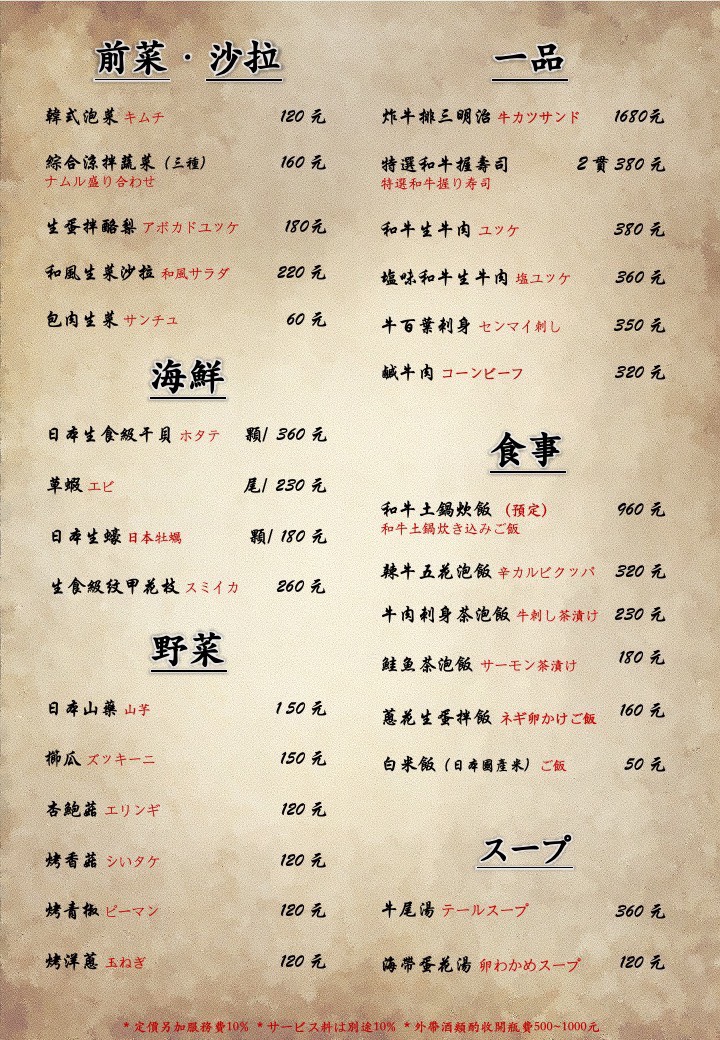 前菜・沙拉
韓式泡菜 キムチ 120 元
綜合涼拌蔬菜（三種） 160 元
ナムル盛り合わせ
生蛋拌酪梨 アボカドユッケ 180元
和風生菜沙拉 和風サラダ 220 元
包肉生菜 サンチュ 60 元
海鮮
日本生食級干貝 ホタテ 顆/ 360 元
草蝦 エビ 尾/ 230 元
日本生蠔 日本牡蠣 顆/ 180 元
生食級紋甲花枝 スミイカ 260 元
野菜
日本山藥 山芋 150 元
櫛瓜 ズッキーニ 150 元
杏鮑菇 エリンギ 120 元
烤香菇 しいタケ 120 元
烤青椒 ピーマン 120 元
烤洋蔥 玉ねぎ 120 元
一品
炸牛排三明治 牛カツサンド 1680元
特選和牛握壽司 2 貫 380 元
特選和牛握り寿司
和牛生牛肉 ユッケ 380 元
塩味和牛生牛肉 塩ユッケ 360 元
牛百葉刺身 センマイ刺し 350 元
鹹牛肉 コーンビーフ 320 元
食事
和牛土鍋炊飯 （預定） 960 元
和牛土鍋炊き込みご飯
辣牛五花泡飯 辛カルビクッパ 320 元
牛肉刺身茶泡飯 牛刺し茶漬け 230 元
鮭魚茶泡飯 サーモン茶漬け 180 元
蔥花生蛋拌飯 ネギ卵かけご飯 160 元
白米飯（日本國產米） ご飯 50 元
スープ
牛尾湯 テールスープ 360 元
海帶蛋花湯 卵わかめスープ 120 元
＊定價另加服務費10% ＊サービス料は別途10% ＊外帶酒類酌收開瓶費500~1000元